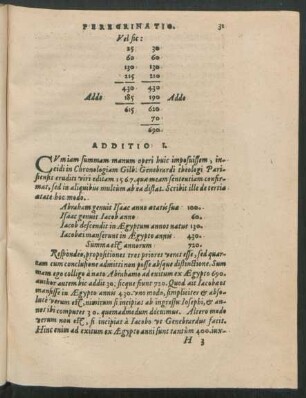 PEREGRINATIO. 31
Vel sic:
25 30
60 60
130 130
215 210
430 430
Adde 185 190 Adde
615 620
70
690
ADDITIO I.
CVm iam summam manum operi huic imposuissem, in-
cidi in Chronologiam Gilb: Genebrardi theologi Pari-
siensis eruditi viri editam 1567. quæ meam sententiam confir-
mat, sed in aliquibus multum ab ea distat. Scribit ille de tertia
ætate hoc modo.
Abraham genuit Isaac anno ætatis suæ 100.
Isaac genuit Iacob anno 60.
Iacob descendit in Ægyptum annos natus 130.
Iacobitæ manserunt in Ægypto annis 430.
Summa est annorum 720.
Respondeo, propositiones tres priores veras esse, sed quar-
tam cum conclusione admitti non posse absque distinctione. Sum-
mam ego colligo à nato Abrahamo ad exitum ex Ægypto 690.
annorum autem bis addit 30. sicque sunt 720. Quod ait Iacobæos
mansisse in Ægypto annis 430. vno modo, simpliciter & abso-
lute verum est, nimirum si incipias ab ingressu Iosephi, & an-
nos ibi computes 30. quemadmodum diximus. Altero modo
verum non est, si incipias à Iacobo vt Genebrardus facit.
Hinc enim ad exitum ex Ægypto anni sunt tantùm 400. iux-
H 3